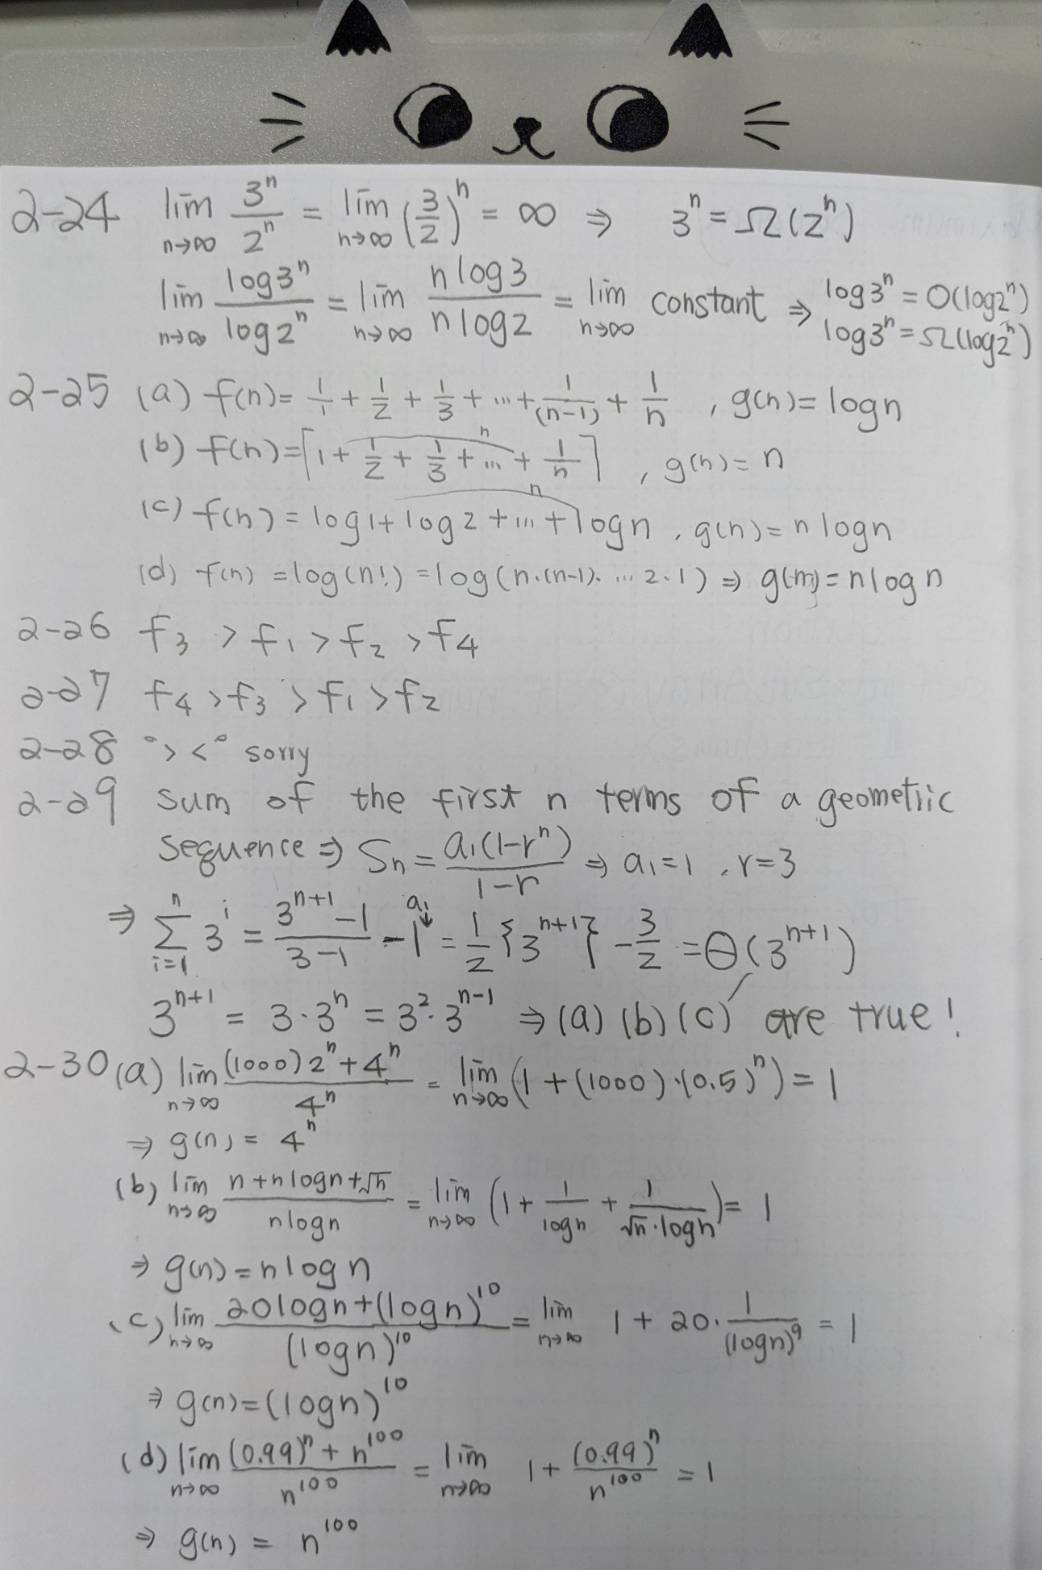 2-24 lim n→∞ 3ⁿ/2ⁿ = lim n→∞ (3/2)ⁿ = ∞ ⇒ 3ⁿ = Ω(2ⁿ)
lim n→∞ log3ⁿ/log2ⁿ = lim n→∞ n log3/n log2 = lim n→∞ constant ⇒ log3ⁿ = O(log2ⁿ)
log3ⁿ = Ω(log2ⁿ)
2-25 (a) f(n) = 1/1 + 1/2 + 1/3 + ... + 1/(n-1) + 1/n , g(n) = logn
(b) f(n) = ⌈1 + 1/2 + 1/3 + ... + 1/n⌉ , g(n) = n
n
(c) f(n) = log1 + log2 + ... + logn , g(n) = n logn
n
(d) f(n) = log(n!) = log(n·(n-1)· ... 2·1) ⇒ g(n) = n log n
2-26 f₃ > f₁ > f₂ > f₄
2-27 f₄ > f₃ > f₁ > f₂
2-28 °> <° sorry
2-29 sum of the first n terms of a geometric
sequence ⇒ Sn = a₁(1-rⁿ)/1-r ⇒ a₁=1 , r=3
⇒ Σ i=1 n 3ⁱ = 3ⁿ⁺¹-1/3-1 - 1 a₁↓ = 1/2 {3ⁿ⁺¹} - 3/2 = Θ(3ⁿ⁺¹)
3ⁿ⁺¹ = 3·3ⁿ = 3²·3ⁿ⁻¹ ⇒ (a) (b) (c) are true!
2-30 (a) lim n→∞ (1000)2ⁿ+4ⁿ/4ⁿ = lim n→∞ (1 + (1000)·(0.5)ⁿ) = 1
⇒ g(n) = 4ⁿ
(b) lim n→∞ n+nlogn+√n/nlogn = lim n→∞ (1 + 1/logn + 1/√n·logn) = 1
⇒ g(n) = nlogn
(c) lim n→∞ 20logn+(logn)¹⁰/(logn)¹⁰ = lim n→∞ 1 + 20·1/(logn)⁹ = 1
⇒ g(n) = (logn)¹⁰
(d) lim n→∞ (0.99)ⁿ + n¹⁰⁰/n¹⁰⁰ = lim n→∞ 1 + (0.99)ⁿ/n¹⁰⁰ = 1
⇒ g(n) = n¹⁰⁰